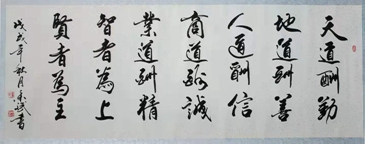 天道酬勤
地道酬善
人道酬信
商道酬誠
業道酬精
智者為上
賢者為主
戊戌年秋月